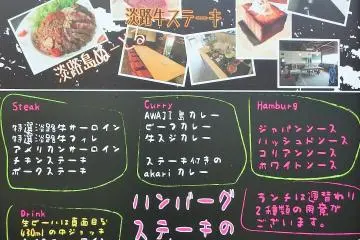 淡路牛ステーキ
淡路島ぬーどる
Steak
特選淡路牛サーロイン
特選淡路牛フィレ
アメリカンサーロイン
チキンステーキ
ポークステーキ
Curry
AWAJI島カレー
ビーフカレー
牛スジカレー
ステーキ付きの
akariカレー
Hamburg
ジャパンソース
ハッシュドソース
コリアンソース
ホワイトソース
ハンバーグ
ステーキの
ランチは週替わり
2種類の用意が
ございます。
Drink
生ビールは真面目な
430mlの中ジョッキ